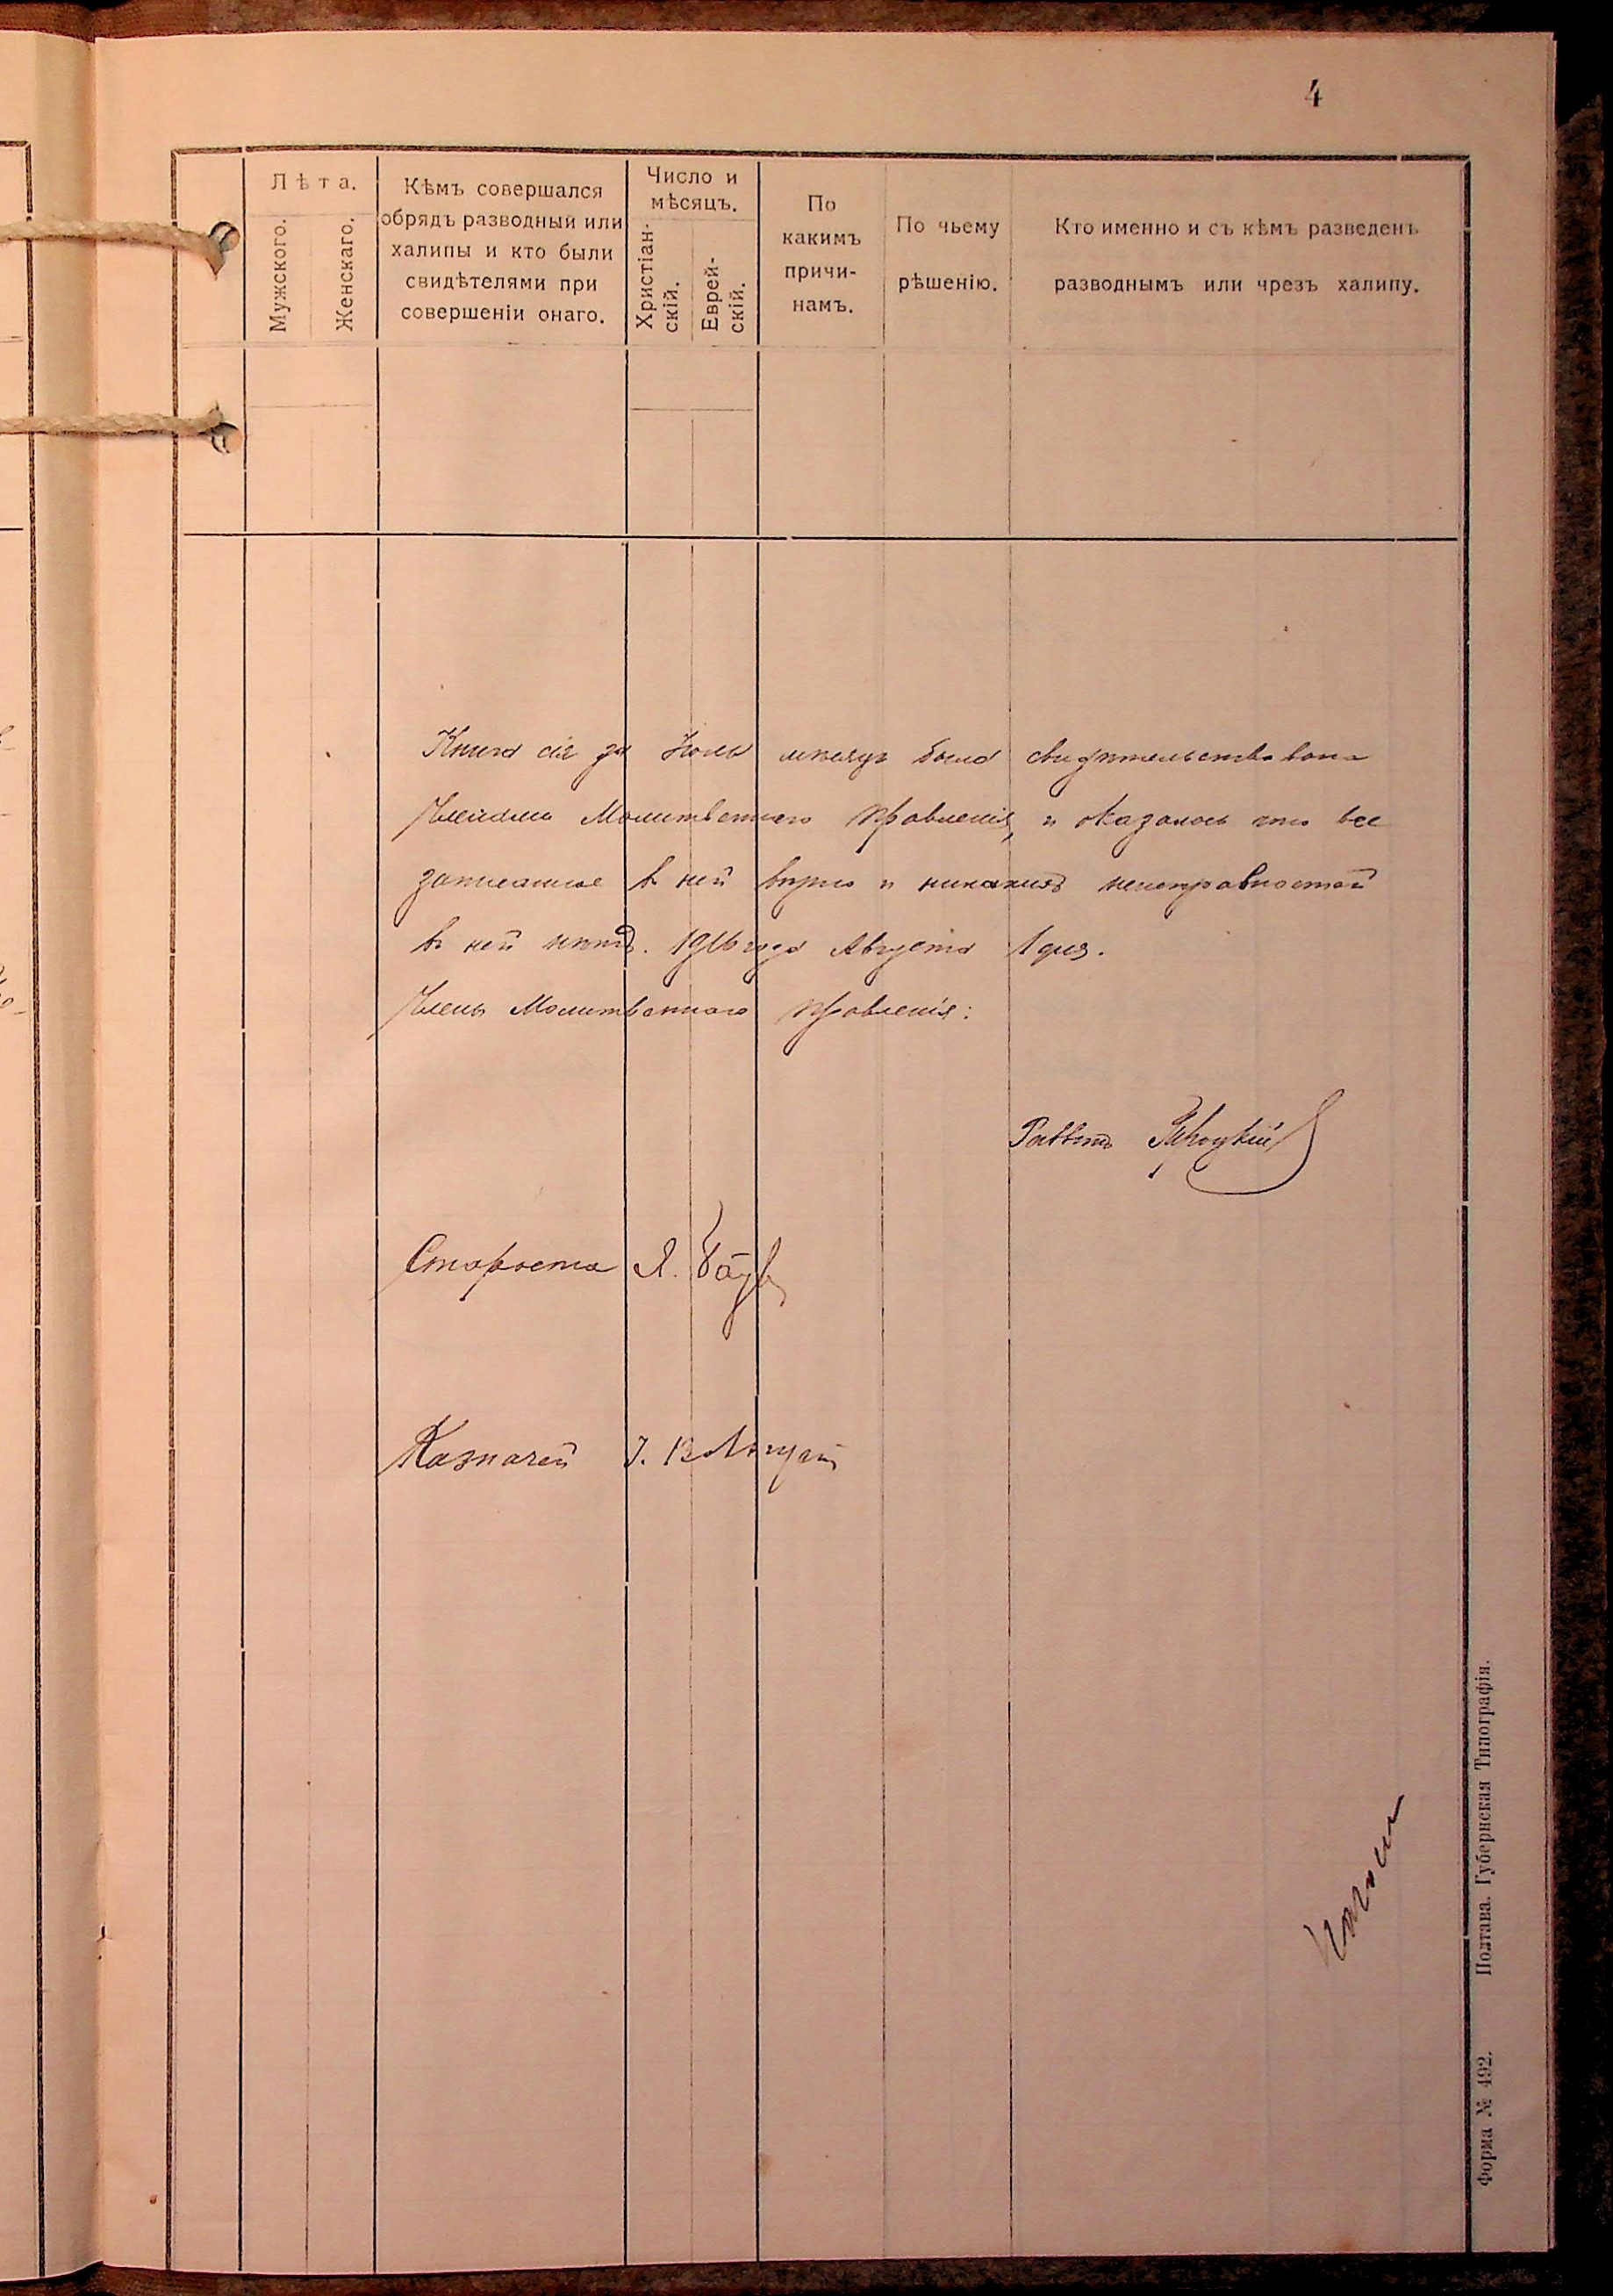 4
Лѣта.
Мужского.
Женскаго.
Кѣмъ совершался
обрядъ разводный или
халипы и кто были
свидѣтелями при
совершеніи онаго.
Число и
мѣсяцъ.
Христіан-
скій.
Еврей-
скій.
По
какимъ
причи-
намъ.
По чьему
рѣшенію.
Кто именно и съ кѣмъ разведенъ
разводнымъ или чрезъ халипу.
Книга сія за Іюль мѣсяцъ была свидѣтельствована
Членами Молитвеннаго Правленія, и оказалось что все
записанное въ ней вѣрно и никакихъ неисправностей
въ ней нѣтъ. 1916 года Августа 1 дня.
Члены Молитвеннаго Правленія:
Раввинъ
Староста Я.
Казначей І.
Полтава. Губернская Типографія.
Форма № 492.